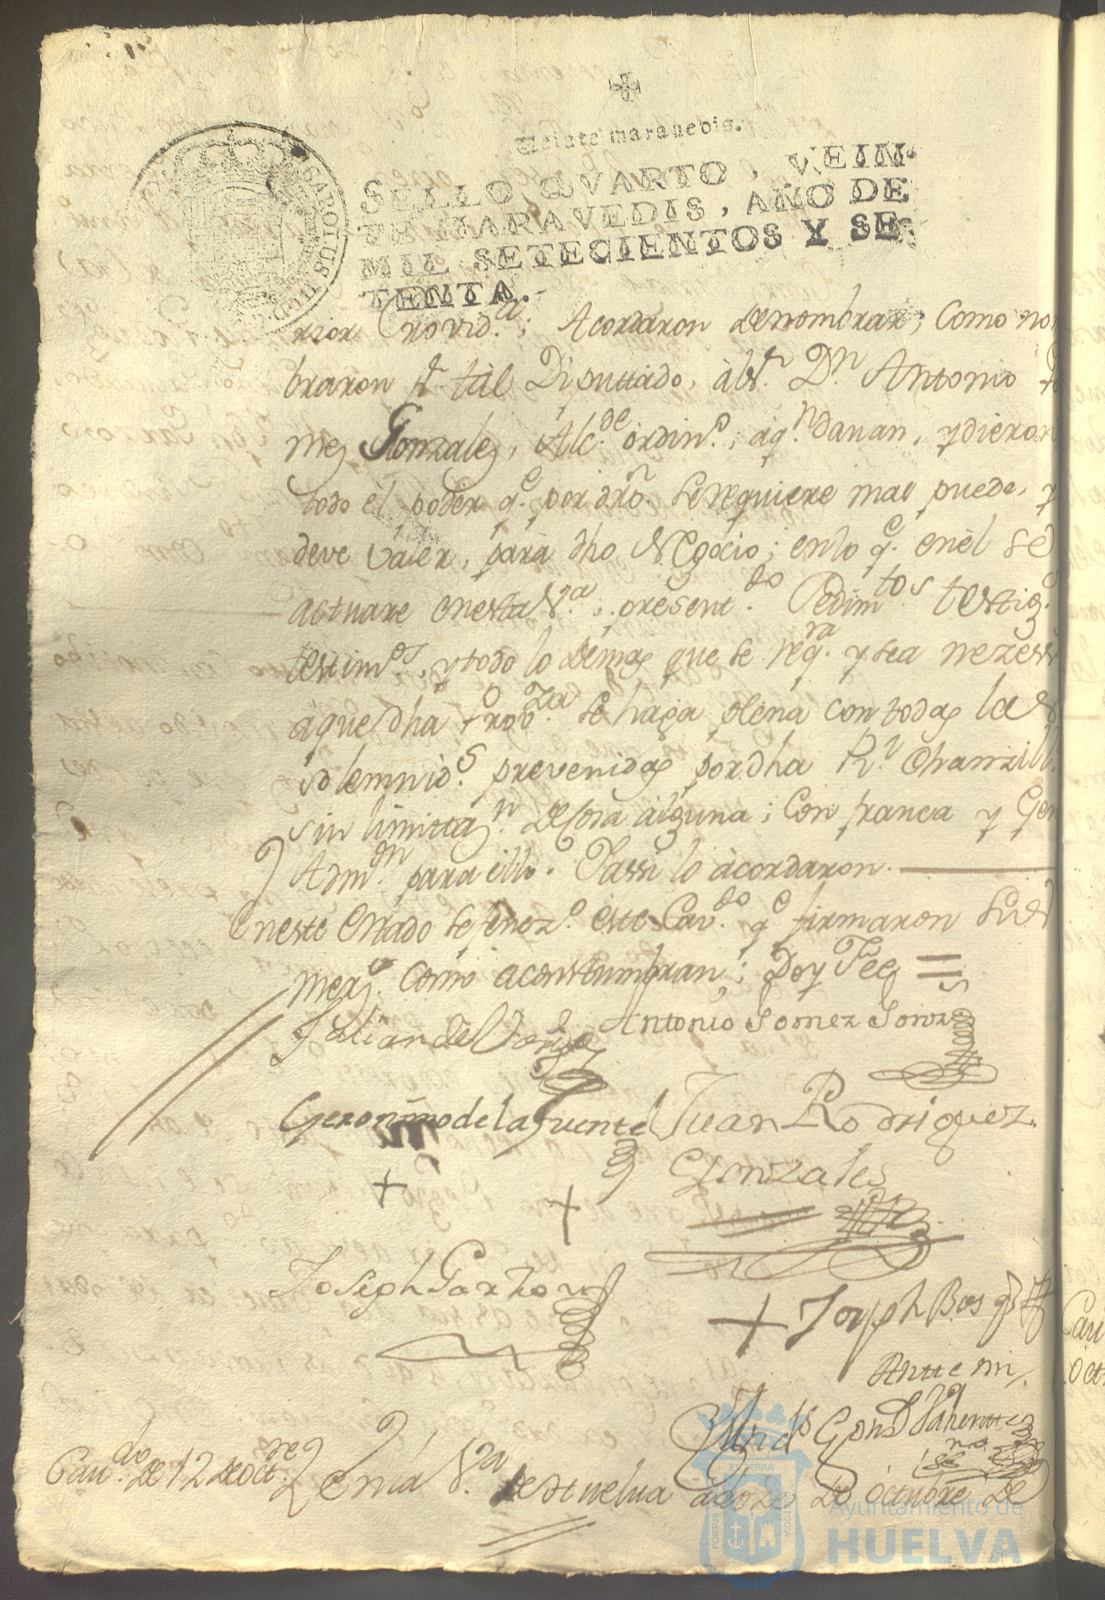 Veinte maravedis.
SELLO QVARTO, VEIN-
TE MARAVEDIS, AÑO DE
MIL SETECIENTOS Y SE-
TENTA.
CAROLUS III D
rior Provid.ª; Acordaron de nombrar, Como nom
braron p.r tal Diputtado, à el S.r D.n Antonio
mez Gonzalez, Alc.de ordin.º, aq.n davan, y dieron
todo el poder q.e por dro. Se requiere mas puede, y
deve valer, para dho Negocio; en lo q.e en èl se
actuare en esta V.ª, present.do Pedim.tos testig.s
testim.os, y todo lo demas que se req.ra y sea nezess
à que dha Prov.za se haga plena con todas las
solemnid.s prevenidas por dha R.l Chanzill.
sin limittaz.n de cosa alguna; Con franca y Gen
Adm.on para ello. Y assi lo àcordaron.
En este estado se fenez.º este Cav.do q.e firmaron Sus
merz.s como acostumbran; Doy Fee =
Julian del
Antonio Gomez Gonz
Geronimo de la Fuente
Juan Rodriguez
Gonzales
Joseph Garzon
Joseph Bas
Antte mi
Cav.do de 12 de oct.re
En la V.ª de Huelva à doze de octubre de
Ayuntamiento de
HUELVA